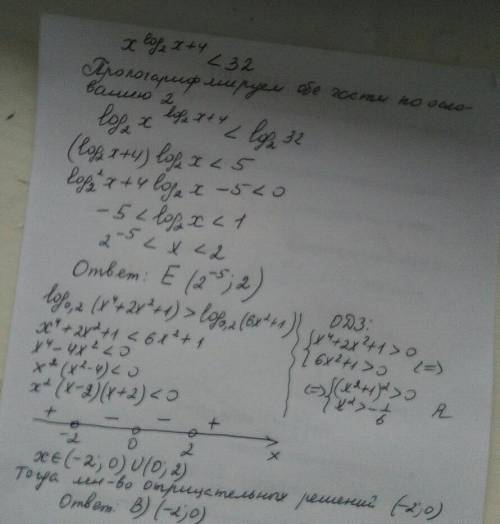 x^(log₂x+4) < 32
Прологарифмируем обе части по осно-
ванию 2
log₂ x^(log₂x+4) < log₂ 32
(log₂x+4) log₂x < 5
log₂²x + 4 log₂x - 5 < 0
-5 < log₂x < 1
2⁻⁵ < x < 2
Ответ: E (2⁻⁵; 2)
log₀,₂ (x⁴+2x²+1) > log₀,₂ (6x²+1)
x⁴+2x²+1 < 6x²+1
x⁴-4x² < 0
x²(x²-4) < 0
x²(x-2)(x+2) < 0
ОДЗ:
{x⁴+2x²+1>0
{6x²+1>0 <=>
<=> {(x²+1)²>0
{x²>-1/6 R
+ - - +
-2 0 2 x
x∈(-2; 0) U (0; 2)
Тогда мн-во отрицательных решений (-2; 0)
Ответ: B) (-2; 0)